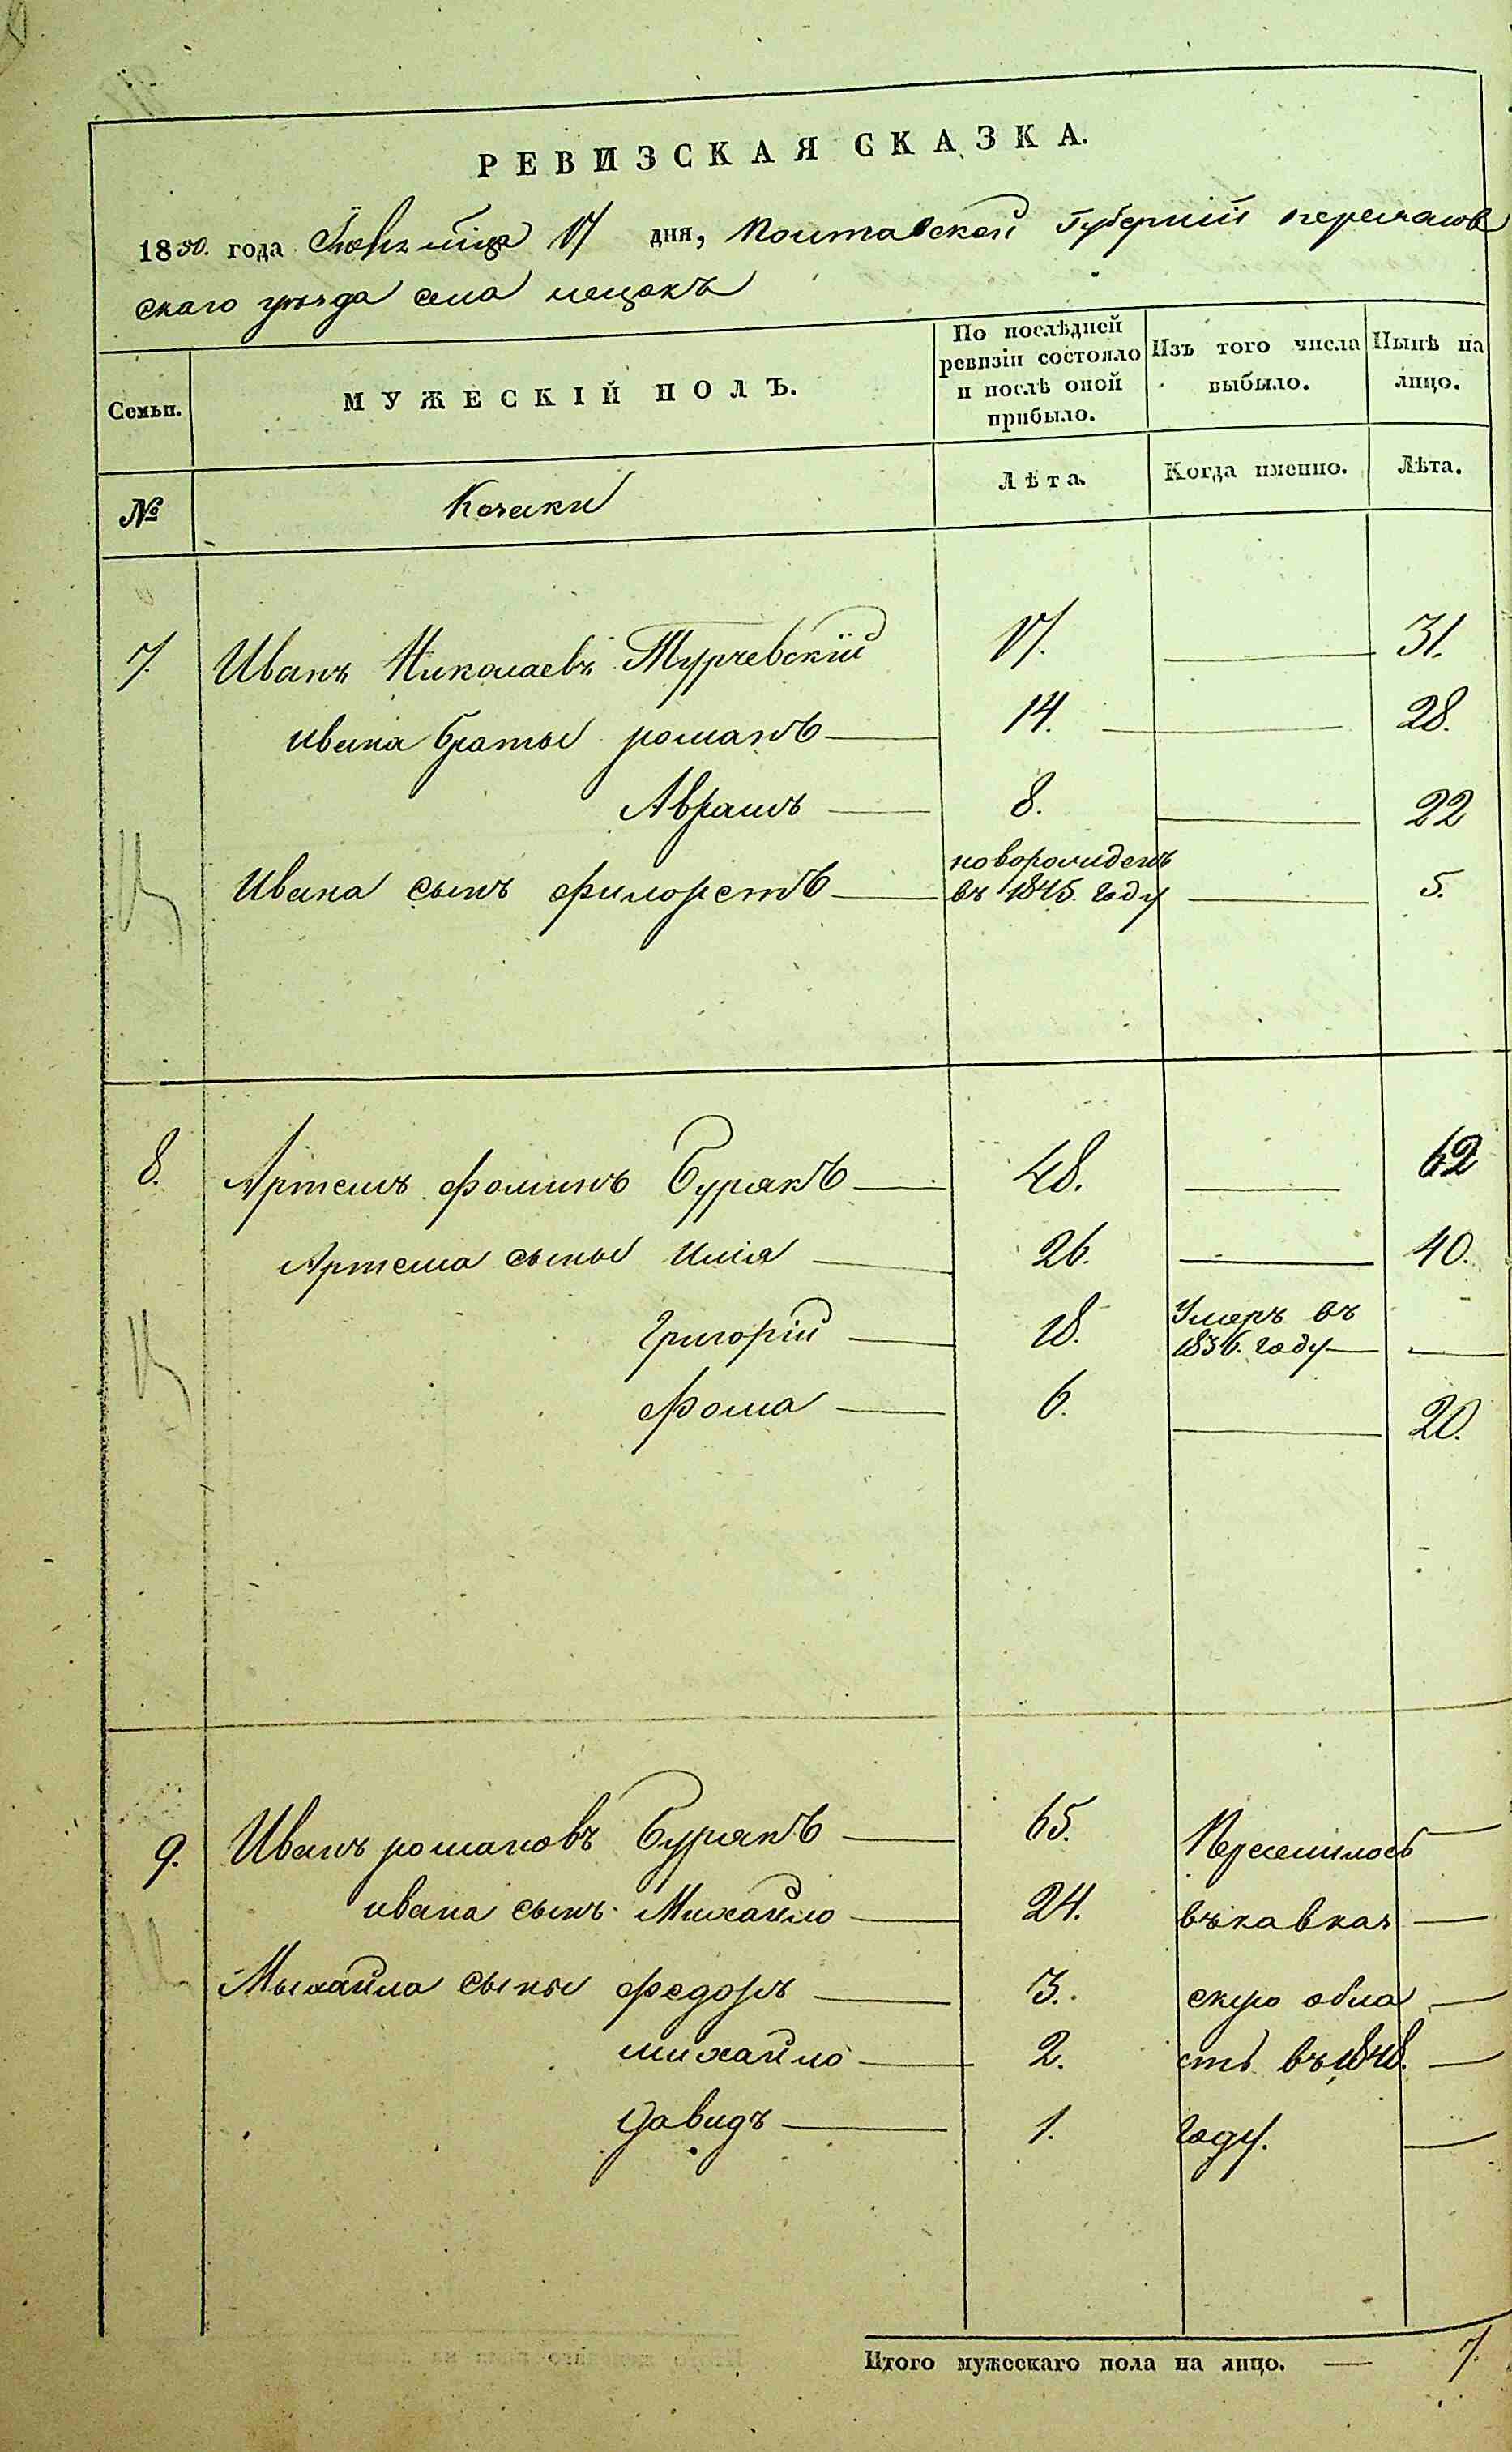 РЕВИЗСКАЯ СКАЗКА.
1850. года мѣца 17 дня, Полтавской Губернии переяслов
скаго уѣзда села
Семьи.
МУЖЕСКІЙ ПОЛЪ.
По послѣдней ревизіи состояло и послѣ оной прибыло.
Изъ того числа выбыло.
Нынѣ на лицо.
№
Козаки
Лѣта.
Когда именно.
Лѣта.
7. Иванъ Николаевъ Турчевскій 17. — 31.
ивана братья романъ — 14. — 28.
Аврамъ — 8. — 22
Ивана сынъ филоретъ — новорожденъ въ 1845. году — 5.
8. Артемъ фоминъ Бурякъ — 48. — 62
Артема сыны илія — 26. — 40.
Григорій — 18. Умеръ въ 1836. году — —
фома — 6. — 20.
9. Иванъ романовъ Бурякъ — 65. Переселилось —
ивана сынъ Михайло — 24. въ кавказ —
Михайла сыны федоръ — 3. скую обла —
михайло — 2. сть въ 1848. —
давидъ — 1. году. —
Итого мужескаго пола на лицо. — 7.